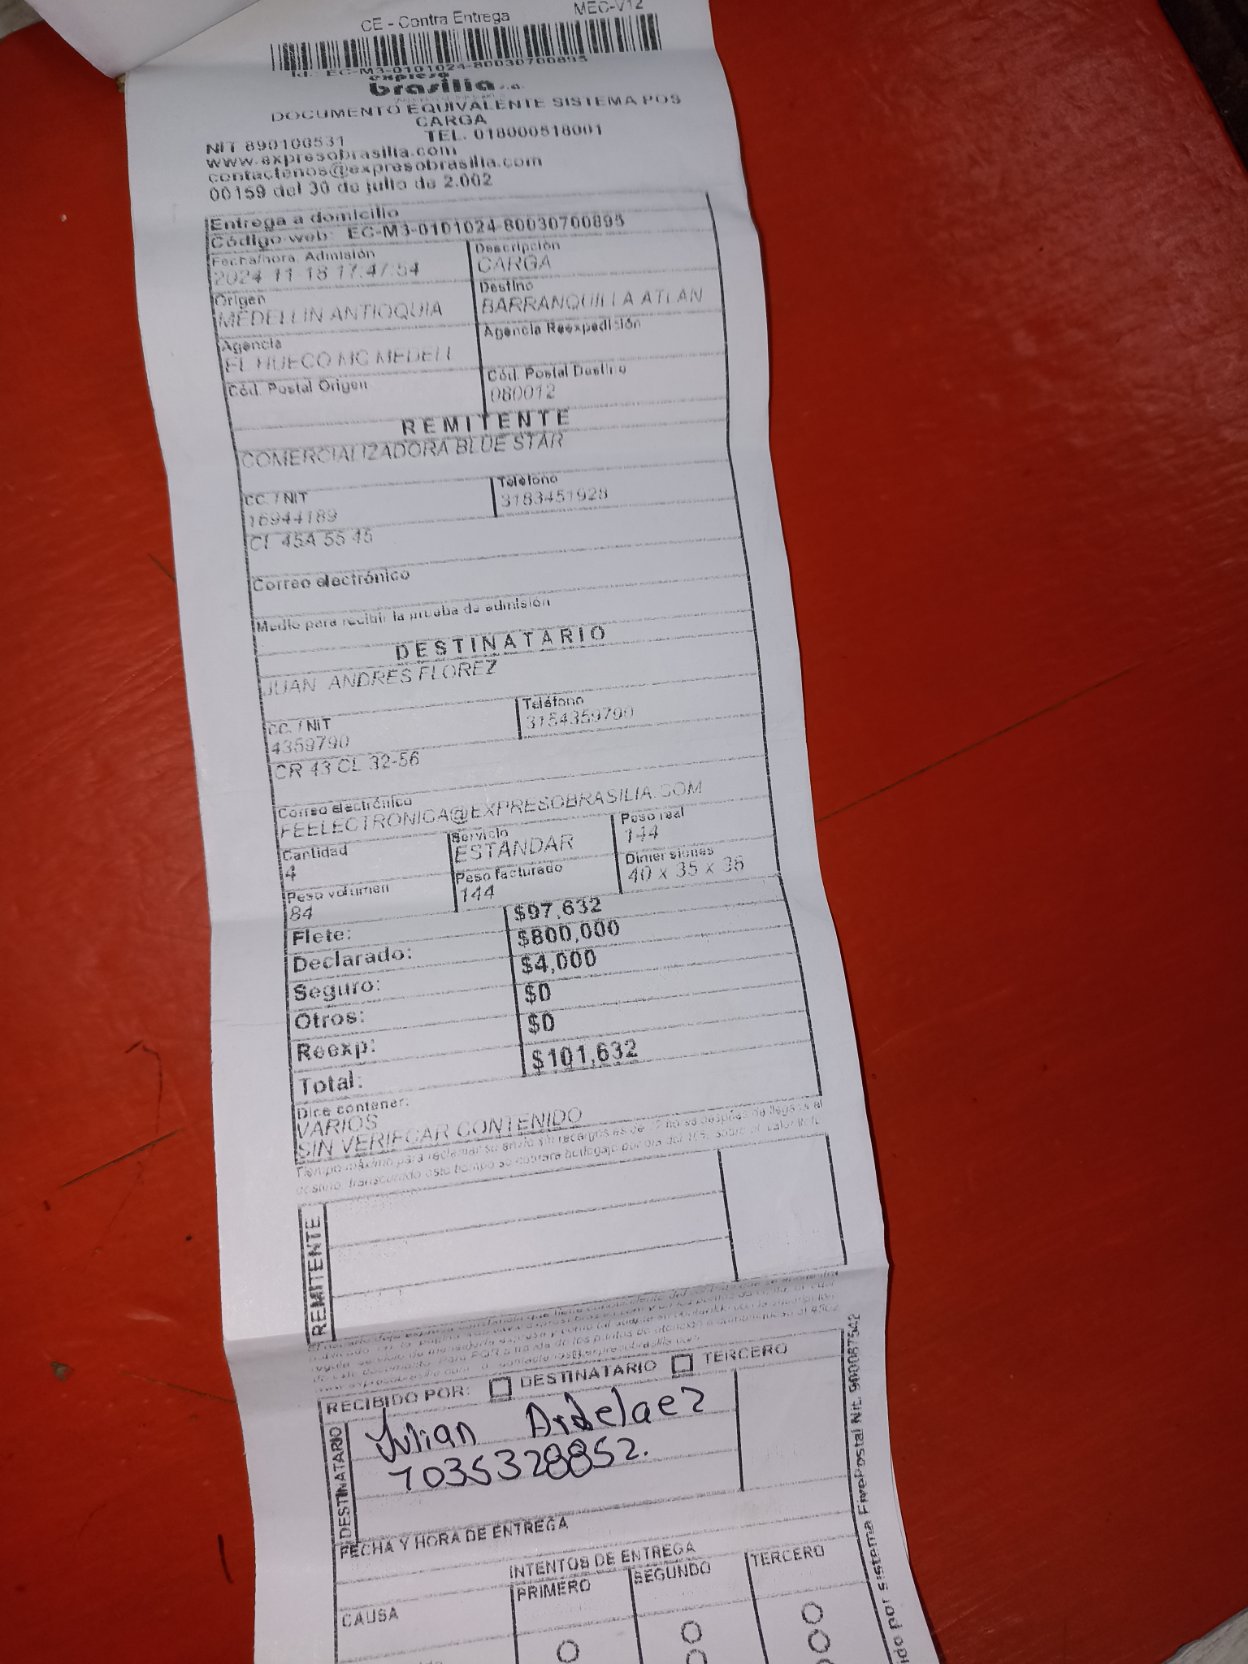 CE - Contra Entrega MEC-V12
Id.: EC-M3-0101024-80030700895
expreso
brasilia s.a.
DOCUMENTO EQUIVALENTE SISTEMA POS
CARGA
NIT 890100531 TEL. 018000518001
www.expresobrasilia.com
contactenos@expresobrasilia.com
00159 del 30 de julio de 2.002
Entrega a domicilio
Código web: EC-M3-0101024-80030700895
Fecha/hora. Admisión Descripción
2024-11-18 17:47:54 CARGA
Origen Destino
MEDELLIN ANTIOQUIA BARRANQUILLA ATLAN
Agencia Agencia Reexpedición
EL HUECO MC MEDELL
Cód. Postal Origen Cód. Postal Destino
080012
REMITENTE
COMERCIALIZADORA BLUE STAR
CC. / NIT Teléfono
16944189 3183451928
CL 45A 55 45
Correo electrónico
Medio para recibir la prueba de admisión
DESTINATARIO
JUAN ANDRES FLOREZ
CC. / NIT Teléfono
4359790 3154359790
CR 43 CL 32-56
Correo electrónico
FEELECTRONICA@EXPRESOBRASILIA.COM
Cantidad Servicio Peso real
4 ESTANDAR 144
Peso volumen Peso facturado Dimensiones
84 144 40 x 35 x 36
Flete: $97,632
Declarado: $800,000
Seguro: $4,000
Otros: $0
Reexp: $0
Total: $101,632
Dice contener:
VARIOS
SIN VERIFICAR CONTENIDO
REMITENTE
RECIBIDO POR: DESTINATARIO TERCERO
DESTINATARIO
Julian Ardelaez
1035328852.
FECHA Y HORA DE ENTREGA
INTENTOS DE ENTREGA
CAUSA PRIMERO SEGUNDO TERCERO
por sistema FivePostal Nit. 900087542